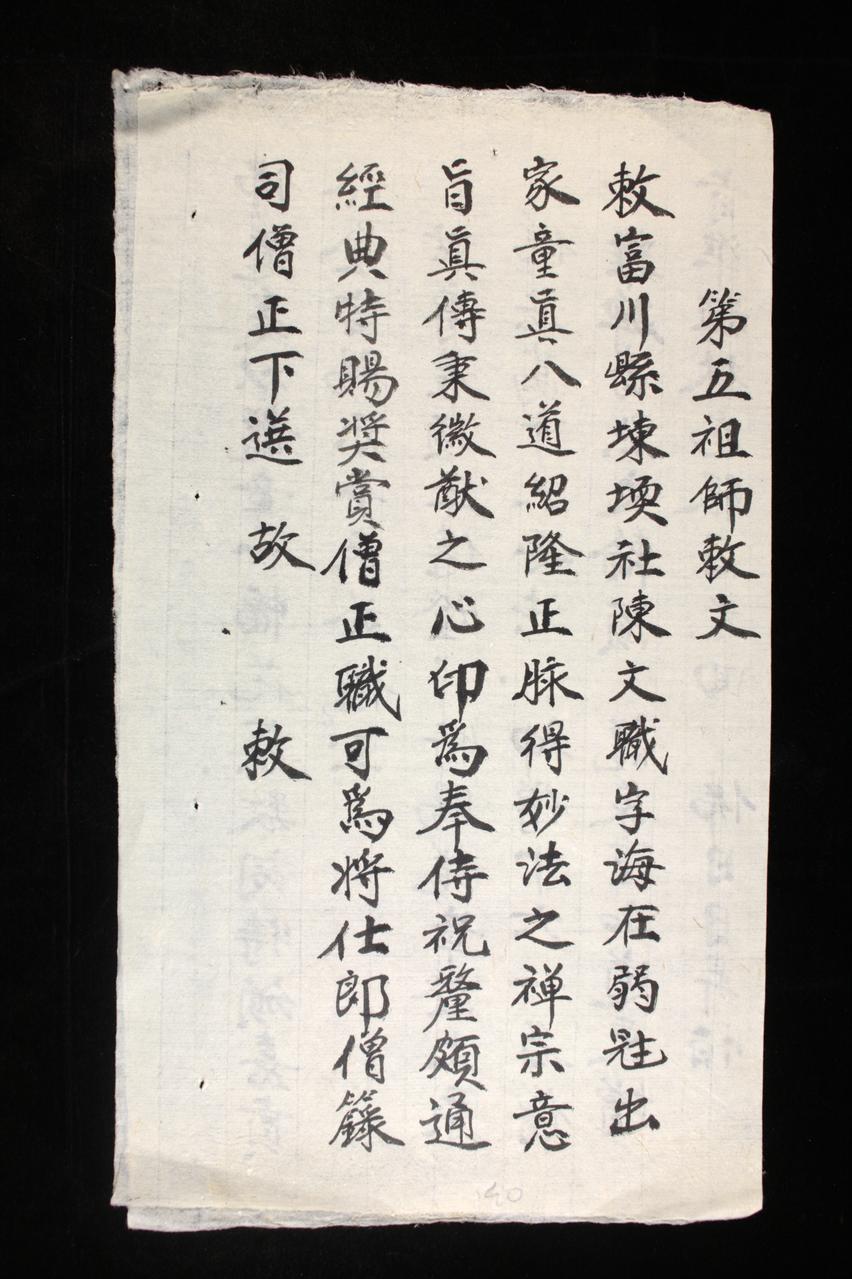 第五祖師敕文
敕富川縣堜㙇社陳文職字海在弱𡿨出
家童眞八道紹隆正脉得妙法之禅宗意
旨眞傳秉徽猷之心印爲奉侍祝釐頗通
經典特賜奬賞僧正職可爲將仕郎僧籙
司僧正下送 故 敕
40